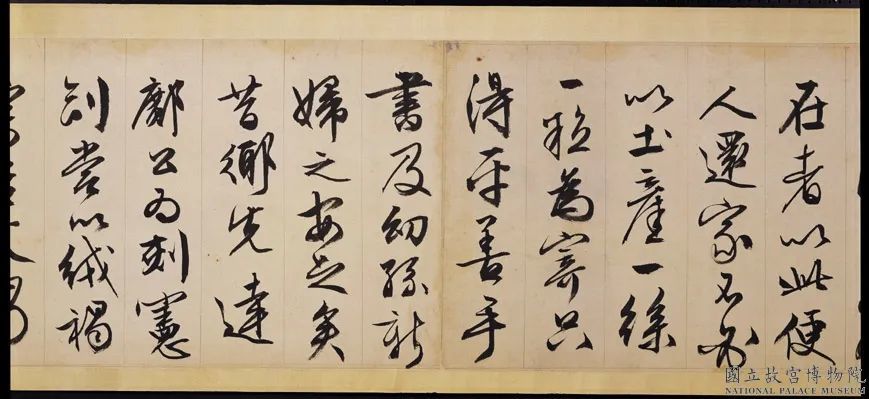 在者以此便
人還家不必
以土產一絲
一粒為寄只
得平善手
書及幼孫新
婦之安足矣
昔鄉先達
鄺公為刺憲
封嘗以絨褐
國立故宮博物院
NATIONAL PALACE MUSEUM